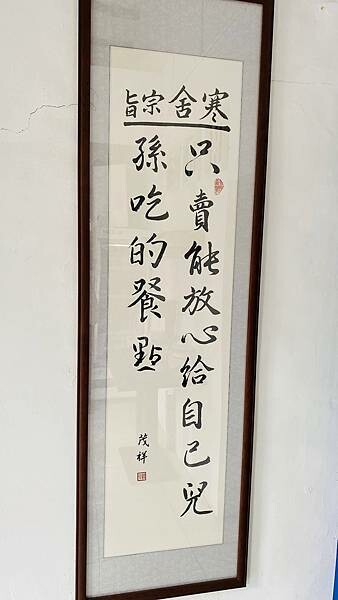 寒舍宗旨
只賣能放心給自己兒
孫吃的餐點
茂祥